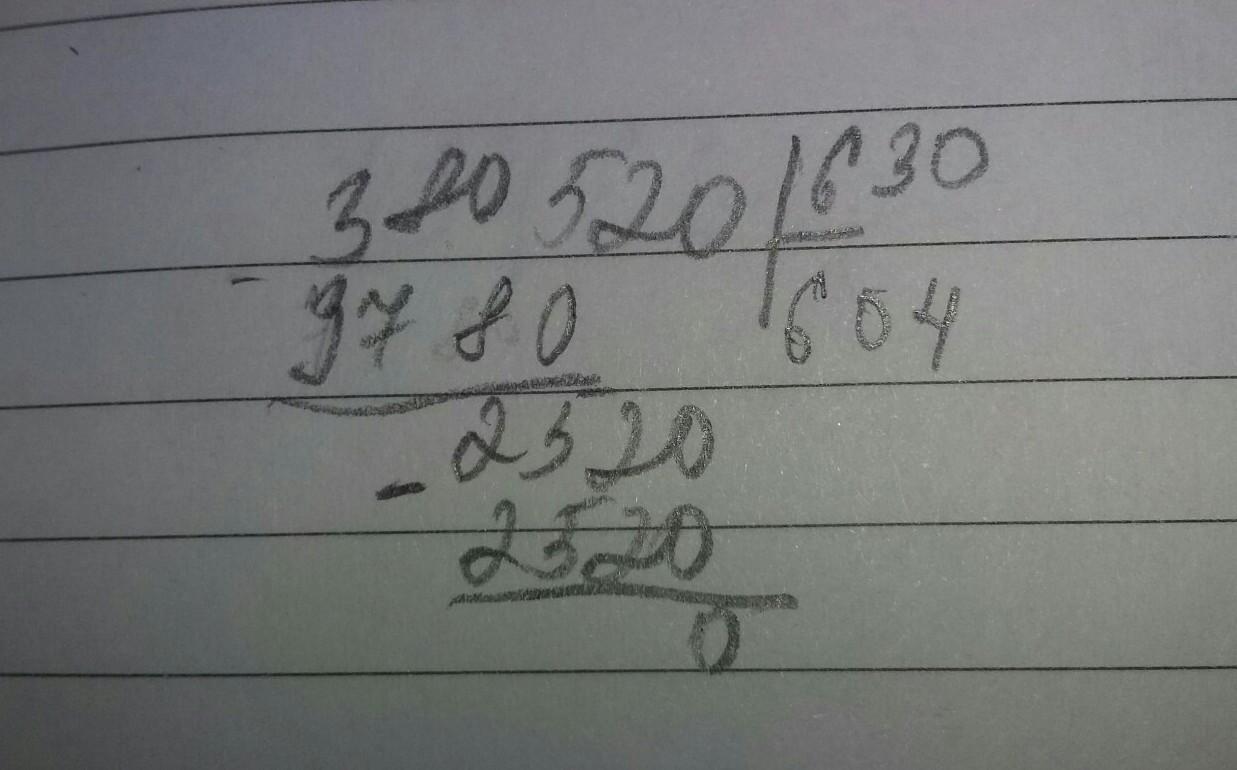 380 520 | 630
- 3780 604
- 2520
2520
0